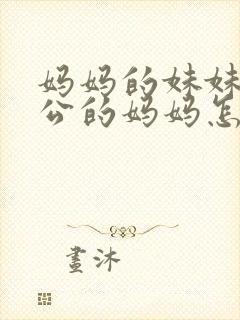 妈妈的妹妹
公的妈妈怎
畫沐